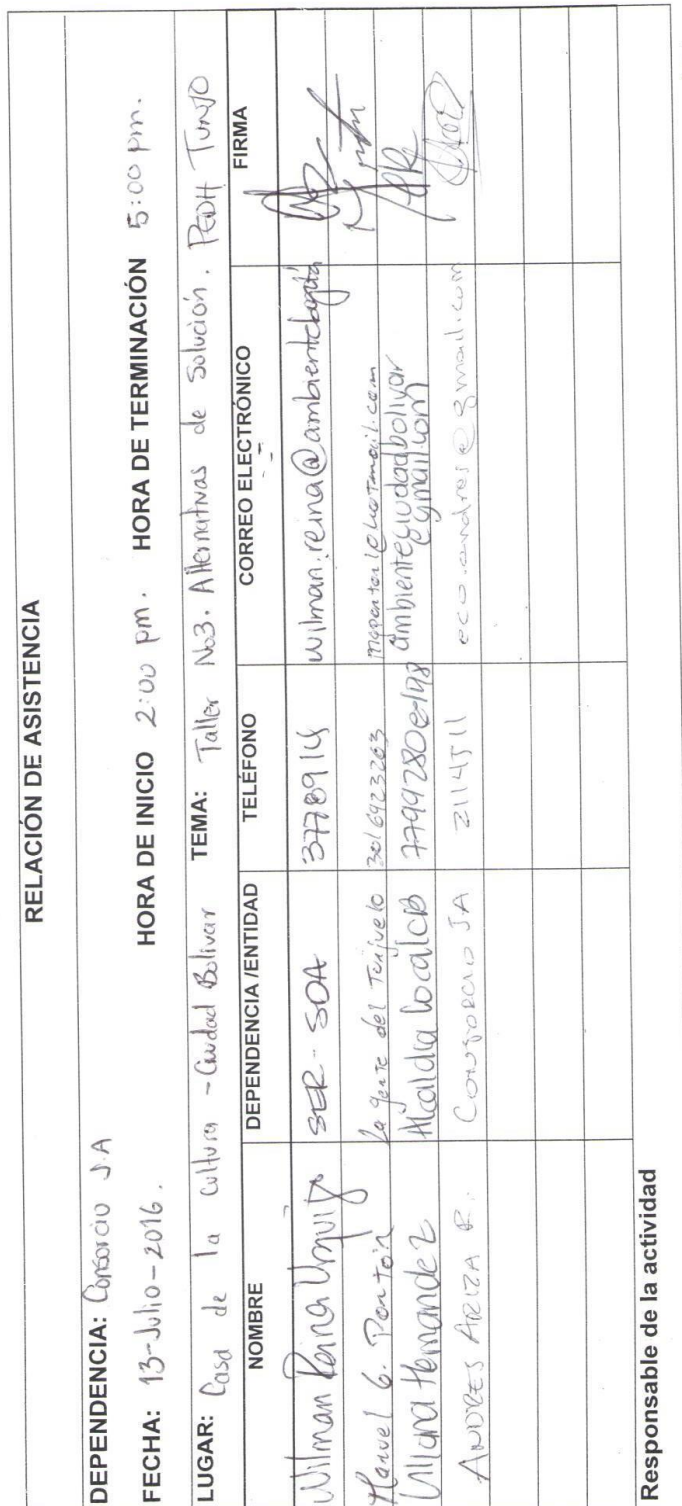 RELACIÓN DE ASISTENCIA
DEPENDENCIA: Consorcio J.A
FECHA: 13-Julio-2016. HORA DE INICIO 2:00 pm. HORA DE TERMINACIÓN 5:00 pm.
LUGAR: Casa de la cultura - Ciudad Bolivar TEMA: Taller No3. Alternativas de Solución. PEDH Tunjo
NOMBRE DEPENDENCIA /ENTIDAD TELÉFONO CORREO ELECTRÓNICO FIRMA
Wilman Reina SER - SDA 3778914 wilman.reina@ambientebogota
Manuel G. Pontón La gente del Tunjuelo 3016923203
Hernandez Alcaldia Local CB ambienteciudadbolivar
@gmail.com
ANDRES ARIZA R. Consorcio JA 2114511 eco.andres@gmail.com
Responsable de la actividad